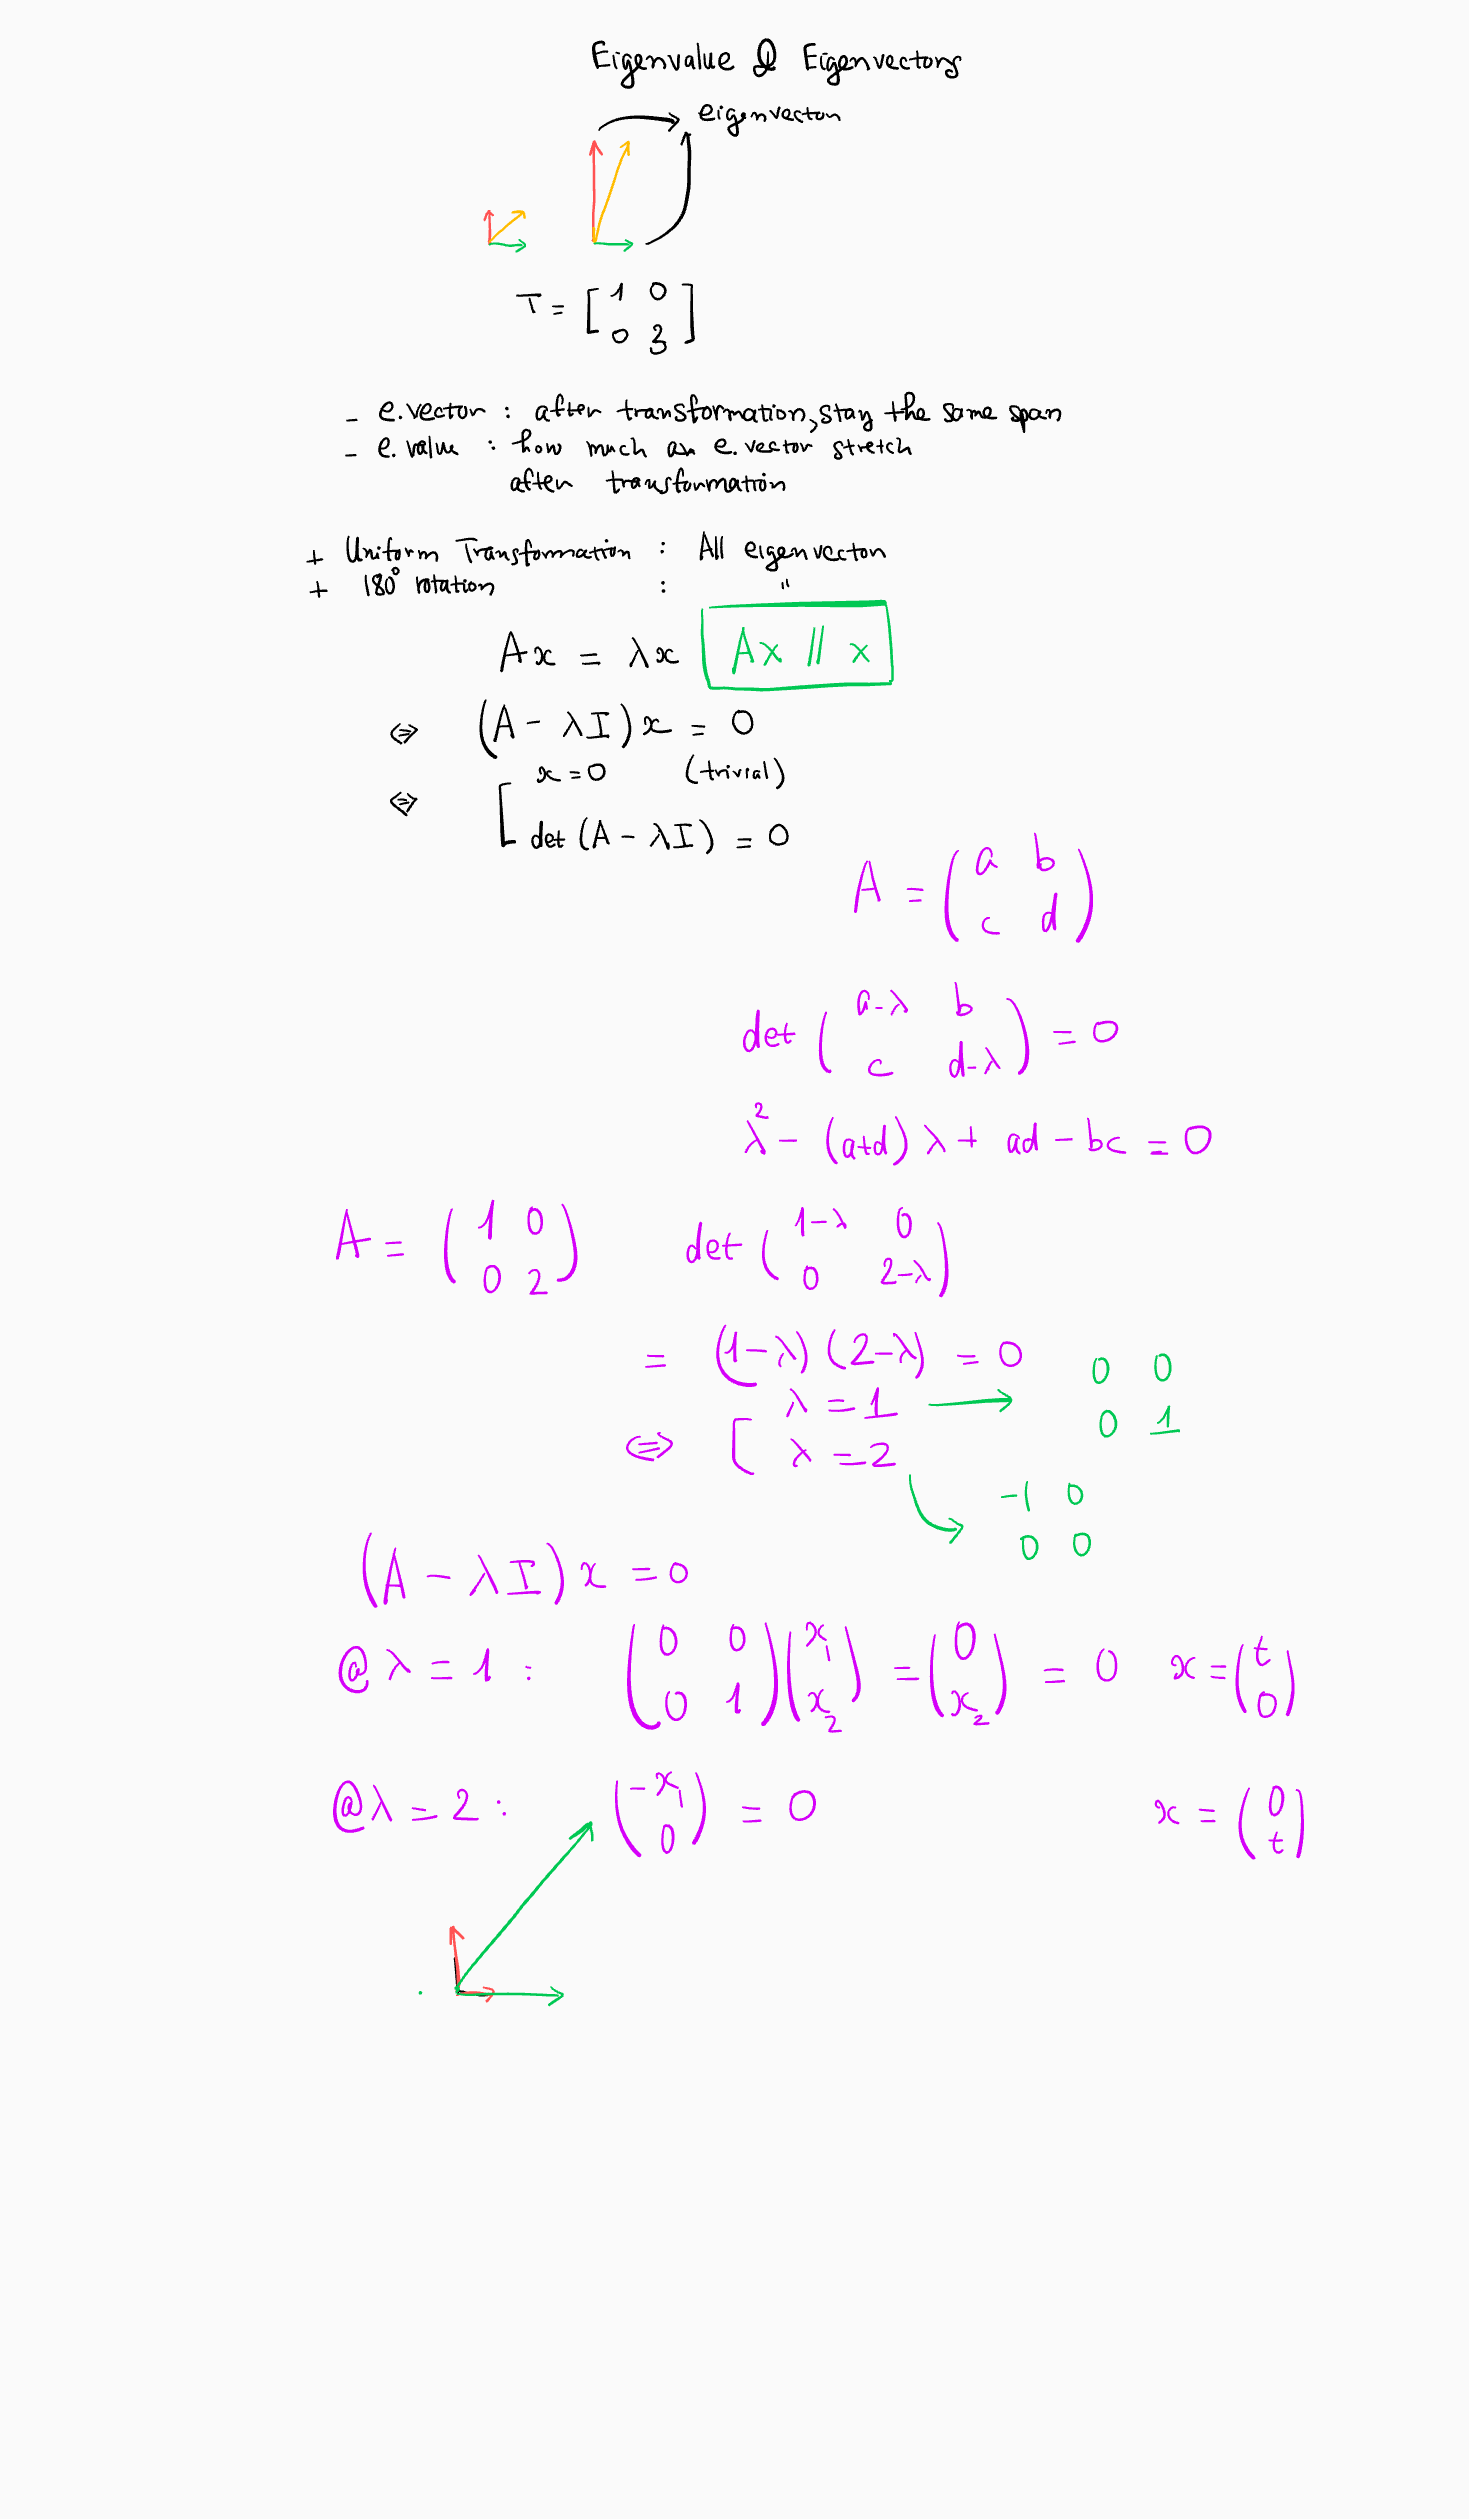 Eigenvalue & Eigenvectors
eigenvector
T = [ 1 0
0 3 ]
- e.vector : after transformation, stay the same span
- e.value : how much an e.vector stretch
after transformation
+ Uniform Transformation : All eigenvector
+ 180° rotation : "
Ax = λx Ax // x
⇔ (A - λI)x = 0
⇔ [ x = 0 (trivial)
det (A - λI) = 0
A = ( a b
c d )
det ( a-λ b
c d-λ ) = 0
λ² - (a+d) λ + ad - bc = 0
A = ( 1 0
0 2 )
det ( 1-λ 0
0 2-λ )
= (1-λ) (2-λ) = 0
⇔ [ λ = 1 → 0 0
0 1
λ = 2
-1 0
0 0
(A - λI)x = 0
@ λ = 1 : ( 0 0
0 1 ) ( x₁
x₂ ) = ( 0
x₂ ) = 0 x = ( t
0 )
@ λ = 2 : ( -x₁
0 ) = 0 x = ( 0
t )